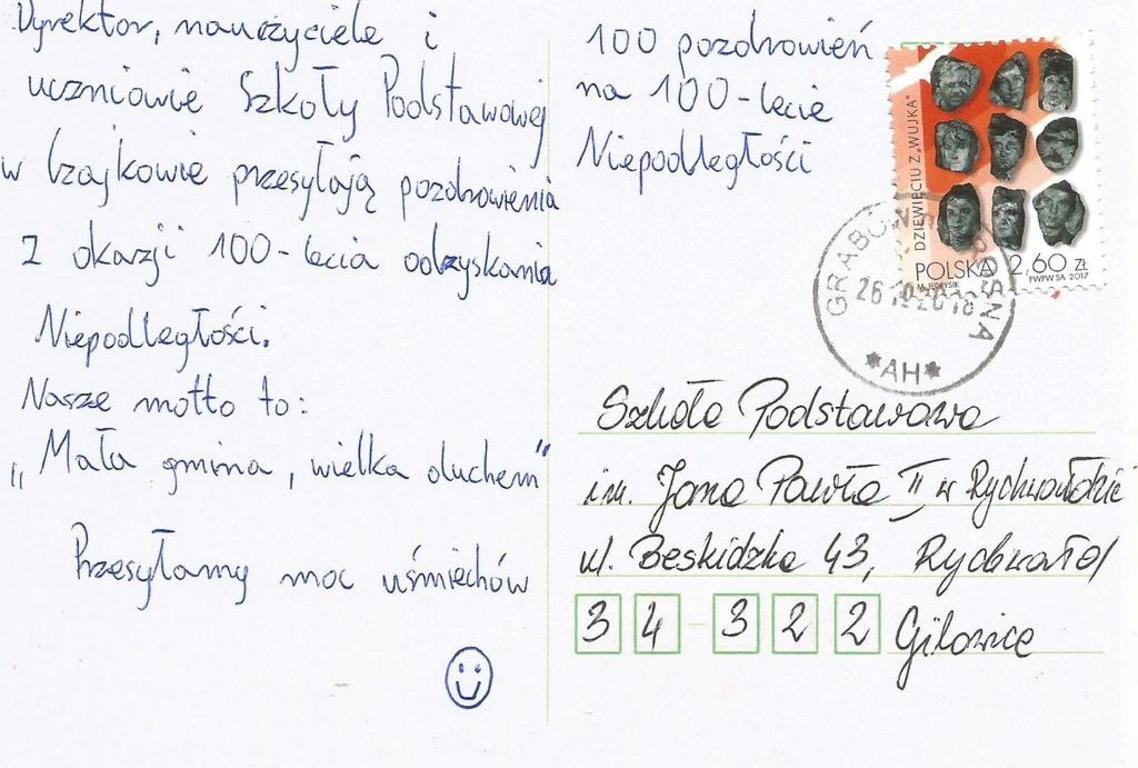 Dyrektor, nauczyciele i
uczniowie Szkoły Podstawowej
w Czajkowie przesyłają pozdrowienia
z okazji 100-lecia odzyskania
Niepodległości.
Nasze motto to:
„Mała gmina, wielka duchem"
Przesyłamy moc uśmiechów
100 pozdrowień
na 100-lecie
Niepodległości
DZIEWIĘCIU Z „WUJKA"
POLSKA 2,60 ZŁ
M. JĘDRYSIK PWPW SA 2017
GRABÓW N. PROSNĄ
26 10 2018
*AH*
Szkoła Podstawowa
im. Jana Pawła II w Rychwałdzie
ul. Beskidzka 43, Rychwałd
34-322 Gilowice